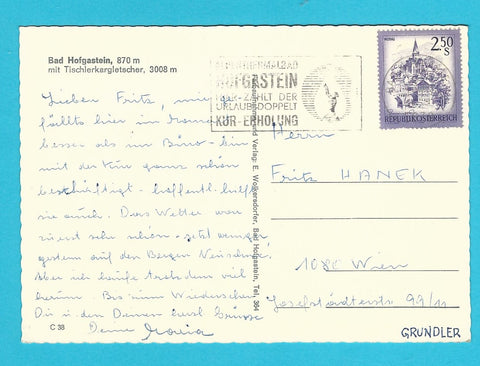 Bad Hofgastein, 870 m
mit Tischlerkargletscher, 3008 m
HOFGASTEIN
ZÄHLT DER
URLAUB DOPPELT
KUR-ERHOLUNG
2.50 S
REPUBLIK ÖSTERREICH
Lieber Fritz, mir ge-
fällts hier im
besser als im Büro - bin
mit der Kur ganz schön
beschäftigt - hoffentl. hilft
sie auch. Das Wetter war
zuerst sehr schön - jetzt weniger
gestern auf den Bergen Neuschnee!
Aber ich laufe trotzdem viel
herum. Bis zum Wiedersehen
Dir u. den Deinen herzl. Grüsse
Deine Maria
C 38
und Verlag: E. Wolkersdorfer, Bad Hofgastein, Tel. 364
Herrn
Fritz HANEK
1080 Wien
Josefstädterstr. 99/11
GRUNDLER